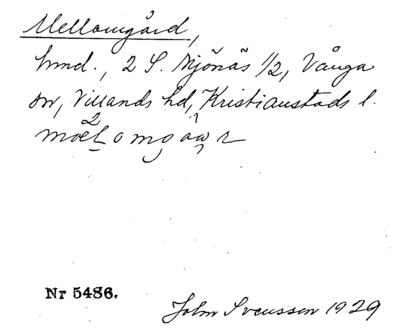 Mellomgård,
hmd., 2 S. Mjönäs 1/2, Vånga
sn, Villands hd, Kristianstads l.
Nr 5486.
John Svensson 1929